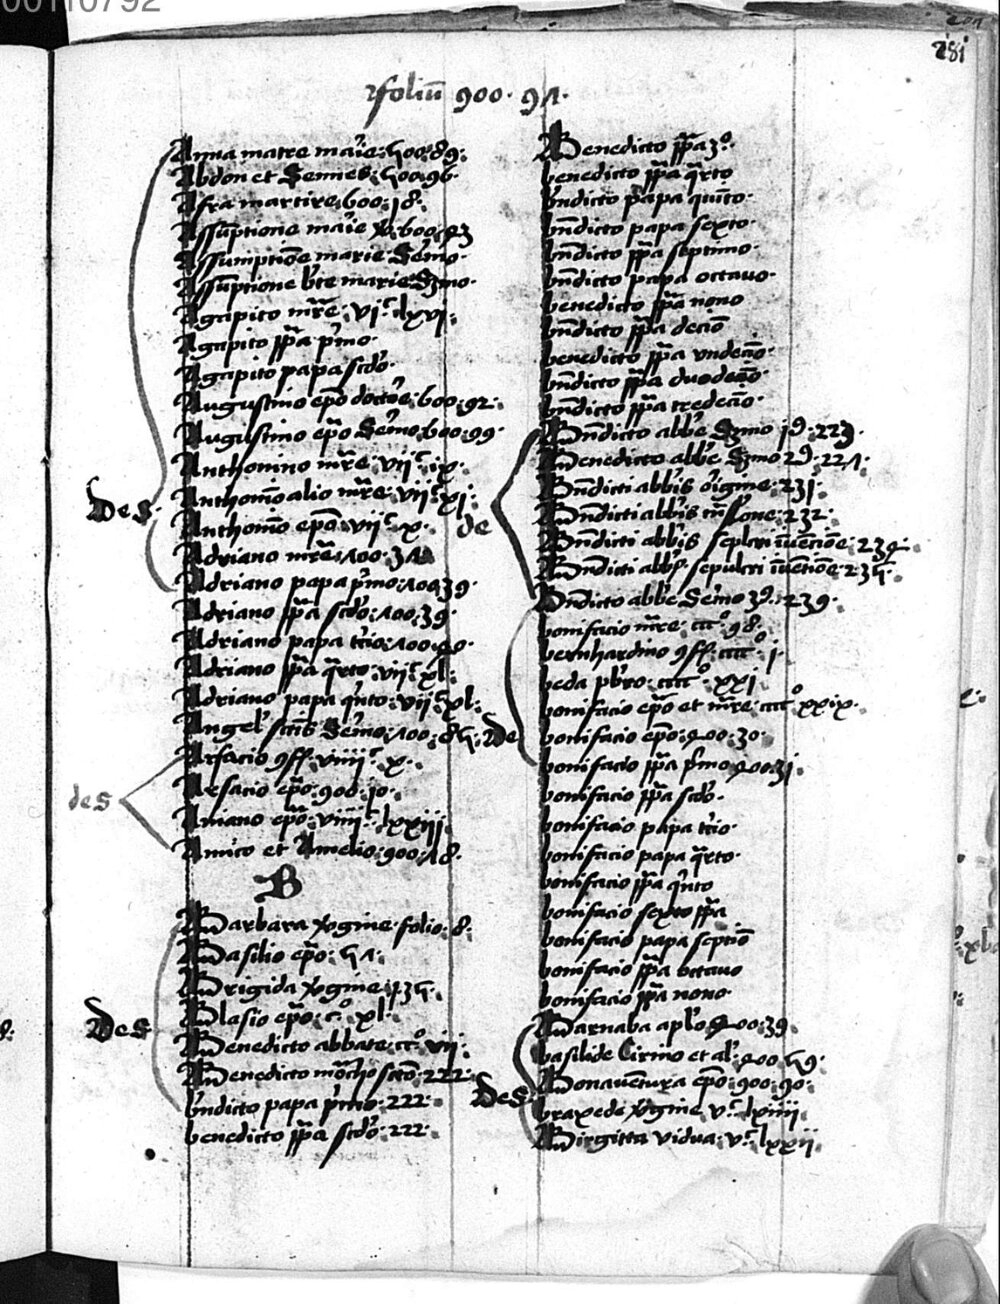 00110792
281
foliū 900. 91.
Anna matre maīe: 500: 89:
Abdon et Sennes: 500 96.
Afra martire 600: 18.
Assūptione maīe 600: 43
Assumptiōe marie Sermo.
Assūptione bte marie Sermo.
Agapito mr̄e: vjᶜ lxvj:
Agapito pp̄a pͥmo.
Agapito papa scdo.
Augustino ep̄o doctoē: 600: 92.
Augustino ep̄o Sermo 600: 99.
Anthonino mr̄e: vijᶜ ix.
Anthonīo alio mr̄e: vijᶜ xj.
Anthonīo ep̄o: vijᶜ x.
des
Adriano mr̄e: 700: 37
Adriano papa pͥmo: 700 39.
Adriano pp̄a scdo: 700: 39.
Adriano papa tͥcio: 700: 40.
Adriano pp̄a qͣrto: vijᶜ xl.
Adriano papa qͥnto: vijᶜ xl.
Angel' sctīs Sermo: 700: 85.
Arsacio 9ff: viiijᶜ x.
Arsacio ep̄o: 900: 10.
des
Aniano ep̄o: viiijᶜ lxxiij
Amico et Amelio: 900: 78.
B
Barbara virgine folio: 8.
Basilio ep̄o: 57.
Brigida virgine: 135.
Blasio ep̄o: cͦ xl.
des
Benedicto abbate: ccͦ vij
Benedicto mōcho sctō: 222.
bn̄dicto papa pͥmo: 222.
benedicto pp̄a scdo: 222.
Benedicto pp̄a 3ͦ.
benedicto pp̄a qͣrto
bn̄dicto papa quinto.
bn̄dicto papa sexto.
bn̄dicto pp̄a septimo.
bn̄dicto papa octauo.
benedicto pp̄a nono
bn̄dicto pp̄a decīo
benedicto pp̄a vndecīo.
bn̄dicto pp̄a duodecīo.
bn̄dicto pp̄a tredecīo.
Bn̄dicto abb̄e Sermo 1ͦ. 223.
Benedicto abb̄e Sermo 2ͦ. 227.
Bn̄dicti abb̄is orīgine: 231.
de
Bn̄dicti abb̄is trn̄slōne: 232.
Bn̄dicti abb̄is seplcri īuencīoe: 234.
Bn̄dicti abb̄is sepulcri īuētiōe: 235.
Bn̄dicto abb̄e Sermo 3ͦ. 239.
bonifacio mr̄e: cccͦ 98.
bernhardino 9ff: ccccͦ j.
beda pb̄ro: ccccͦ xxj
bonifacio ep̄o et mr̄e: ccccͦ xxix.
de
bonifacio ep̄o: 400: 30.
bonifacio pp̄a pͥmo 400 31.
bonifacio pp̄a scdo.
bonifacio papa tͥcio.
bonifacio papa qͣrto.
bonifacio pp̄a qͥnto
bonifacio sexto pp̄a
bonifacio papa septīo
bonifacio pp̄a octauo
bonifacio pp̄a nono.
Barnaba aplo 400: 39.
basilide Cirino et al': 400 59.
des
Bonauentura ep̄o: 900: 90.
braxede virgine vᶜ lxiiij.
Birgitta vidua: vᶜ lxxij.